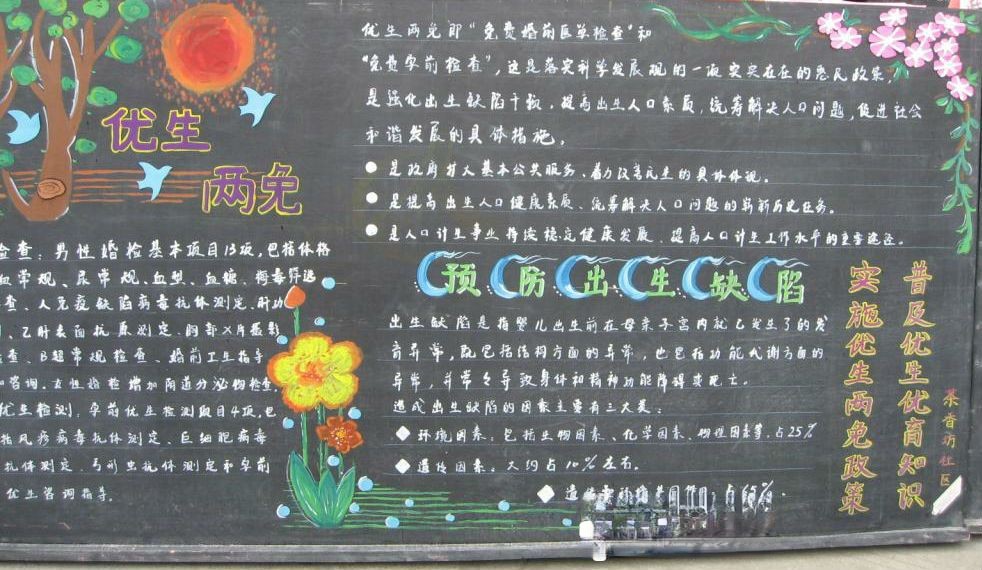 优生
两免
优生两免即“免费婚前医学检查”和
“免费孕前检查”，这是落实科学发展观的一项实实在在的惠民政策，
是强化出生缺陷干预，提高出生人口素质，统筹解决人口问题，促进社会
和谐发展的具体措施。
是政府扩大基本公共服务、着力改善民生的具体体现。
是提高出生人口健康素质、统筹解决人口问题的崭新历史任务。
是人口计生事业持续稳定健康发展、提高人口计生工作水平的重要途径。
检查：男性婚检基本项目13项，包括体格
血常规、尿常规、血型、血糖、梅毒筛选
查、人免疫缺陷病毒抗体测定、肝功
、乙肝表面抗原测定、胸部X片摄影
检查、B超常规检查、婚前卫生指导
和咨询。女性婚检增加阴道分泌物检查
优生检测：孕前优生检测项目4项，包
括风疹病毒抗体测定、巨细胞病毒
抗体测定、弓形虫抗体测定和孕前
优生咨询指导。
预防出生缺陷
出生缺陷是指婴儿出生前在母亲子宫内就已发生了的发
育异常，既包括结构方面的异常，也包括功能代谢方面的
异常，并常令导致身体和精神功能障碍或死亡。
造成出生缺陷的因素主要有三大类：
环境因素：包括生物因素、化学因素、物理因素等，占25%
遗传因素：大约占10%左右。
普及优生优育知识
实施优生两免政策
茶香坊社区